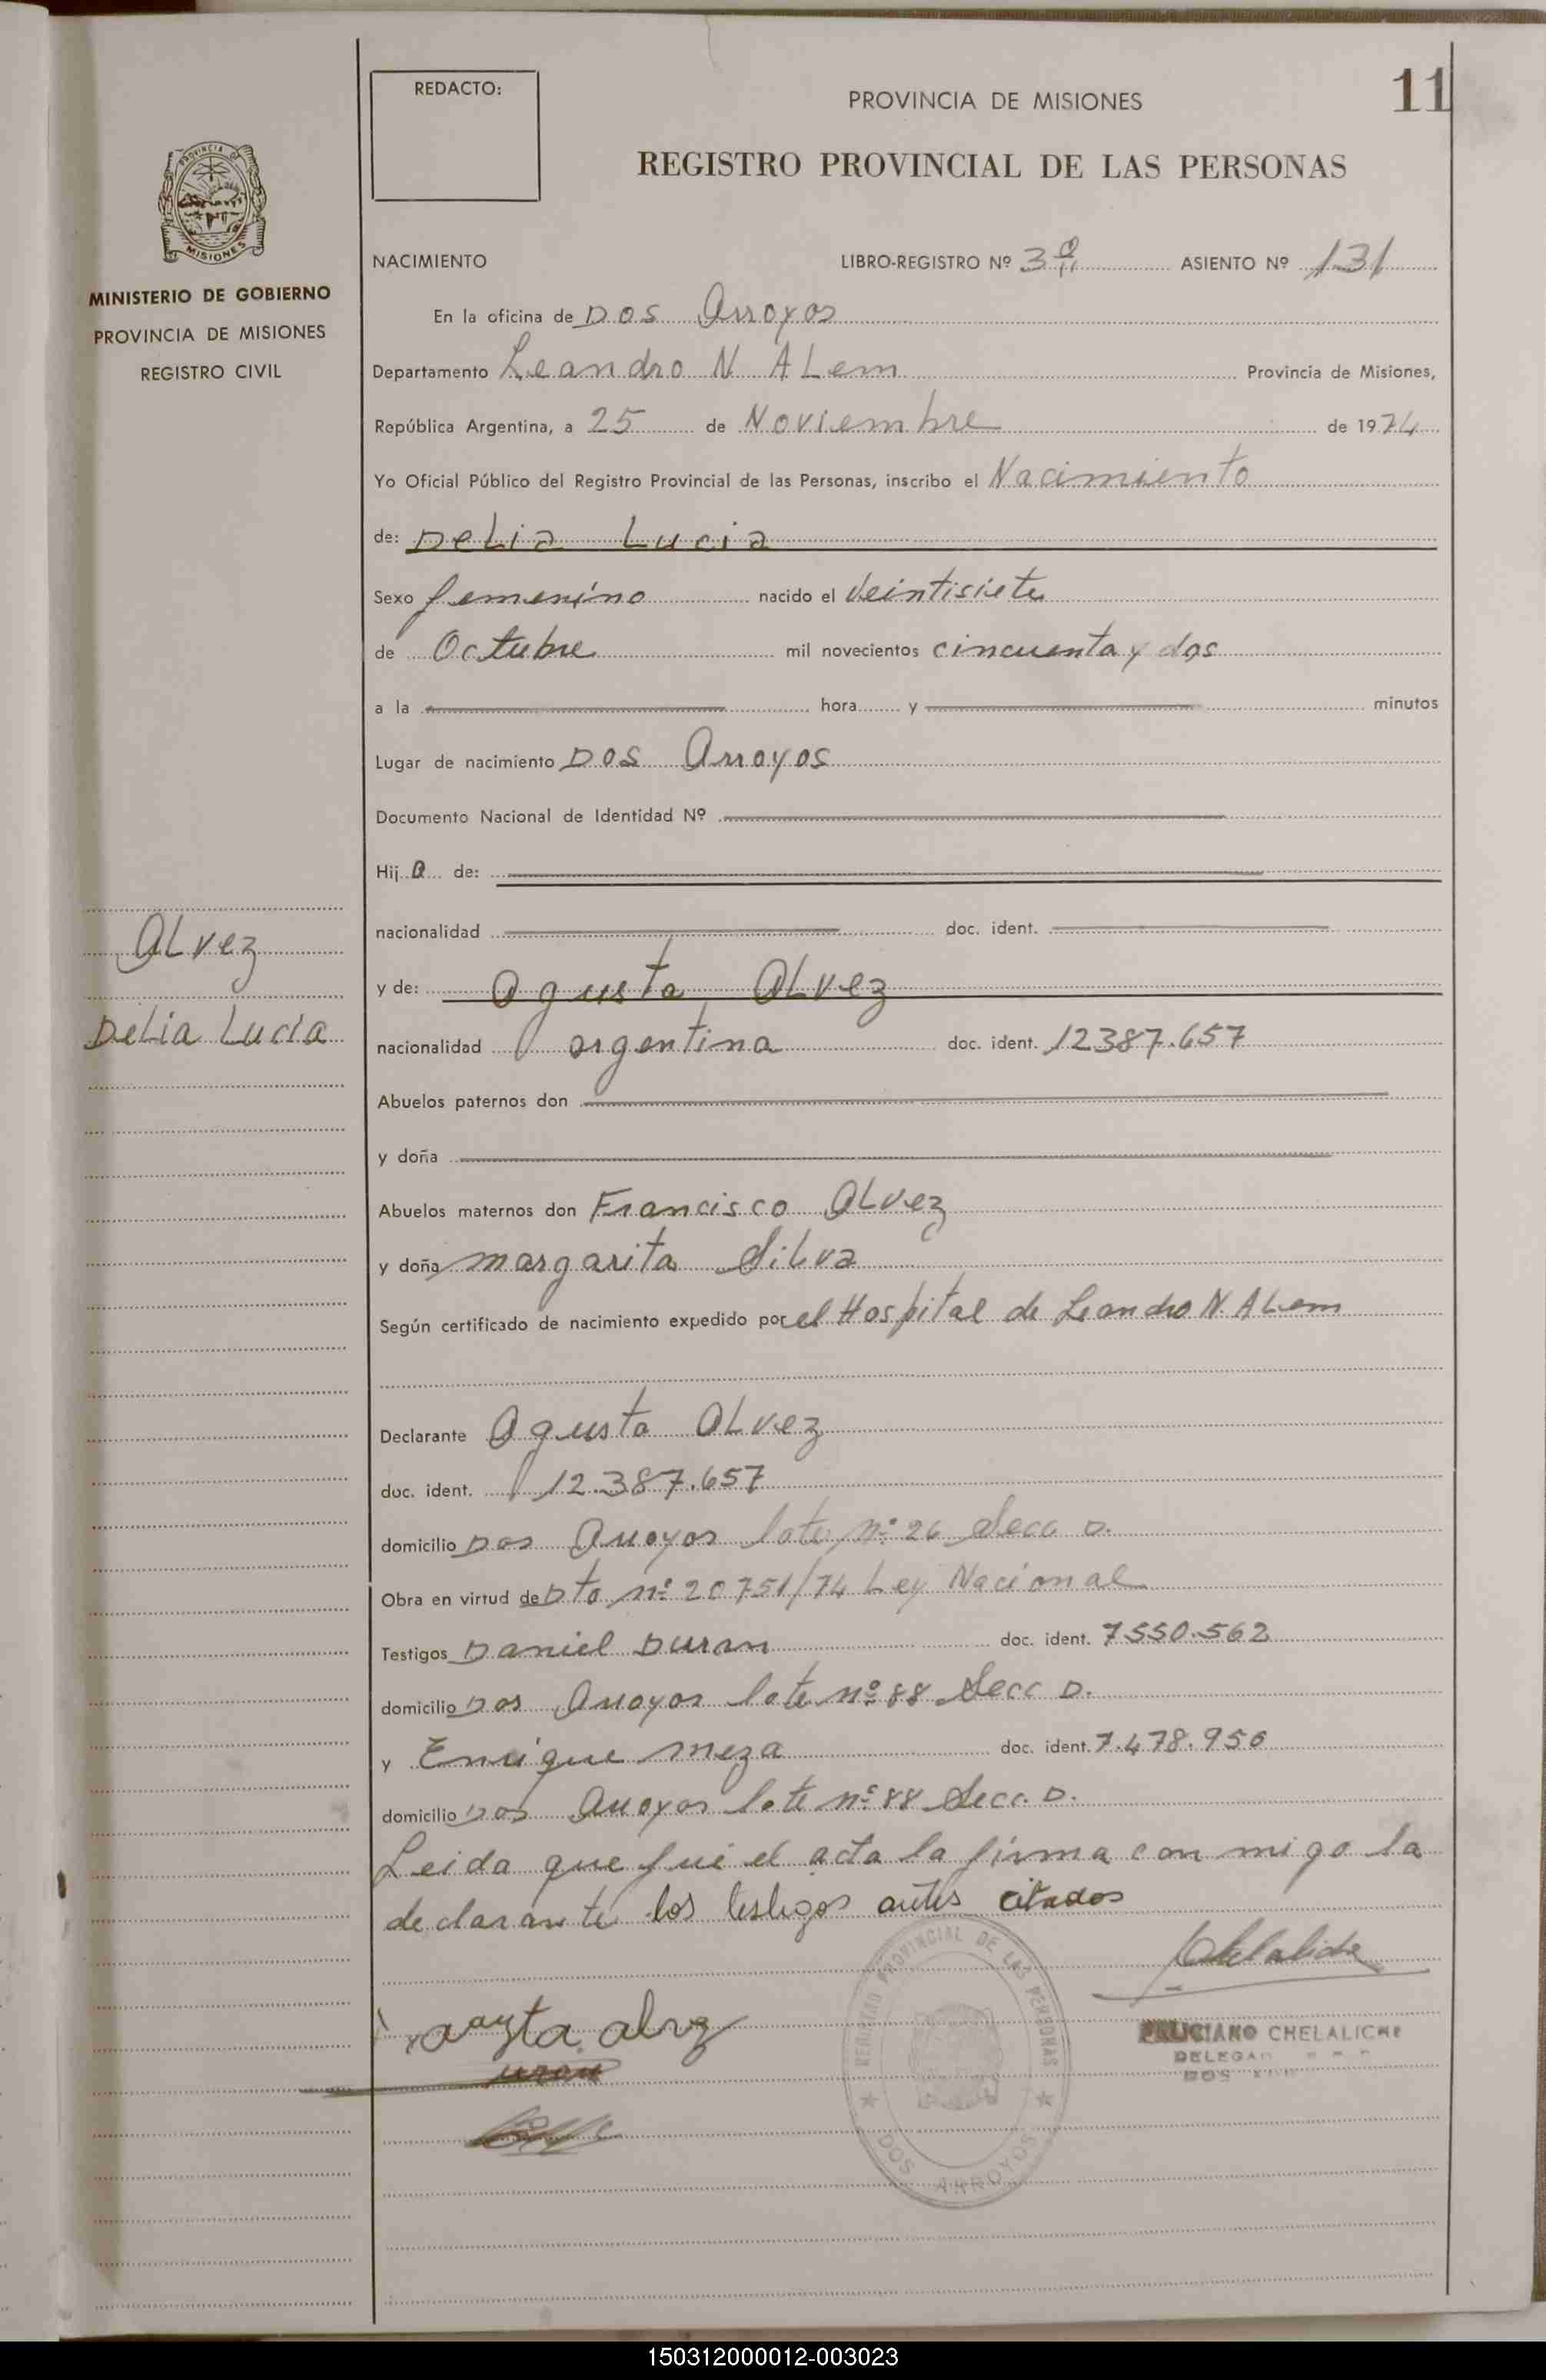 REDACTO:
PROVINCIA DE MISIONES
11
REGISTRO PROVINCIAL DE LAS PERSONAS
PROVINCIA DE
MISIONES
MINISTERIO DE GOBIERNO
PROVINCIA DE MISIONES
REGISTRO CIVIL
NACIMIENTO LIBRO-REGISTRO Nº 3º ASIENTO Nº 131
En la oficina de Dos Arroyos
Departamento Leandro N ALem Provincia de Misiones,
República Argentina, a 25 de Noviembre de 1974
Yo Oficial Público del Registro Provincial de las Personas, inscribo el Nacimiento
de: DeLia Lucia
Sexo femenino nacido el Veintisiete
de Octubre mil novecientos cincuenta y dos
a la hora y minutos
Lugar de nacimiento Dos Arroyos
Documento Nacional de Identidad Nº
Hij a de:
nacionalidad doc. ident.
ALvez
y de: Agusta ALvez
DeLia Lucia
nacionalidad argentina doc. ident. 12387.657
Abuelos paternos don
y doña
Abuelos maternos don Francisco ALvez
y doña margarita SiLva
Según certificado de nacimiento expedido por el Hospital de Leandro N. ALem
Declarante Agusta ALvez
doc. ident. 12.387.657
domicilio Dos Arroyos lote nº 26 Secc D.
Obra en virtud de Dto nº 20751/74 Ley Nacional
Testigos Daniel Duran doc. ident. 7550.562
domicilio Dos Arroyos lote nº 88 Secc D.
y Enrique meza doc. ident. 7.478.956
domicilio Dos Arroyos lote nº 88 Secc. D.
Leida que fue el acta la firma con migo la
declarante los testigos antes citados
Chelaliche
REGISTRO PROVINCIAL DE LAS PERSONAS
DOS ARROYOS
FELICIANO CHELALICHE
DELEGA
DOS
150312000012-003023